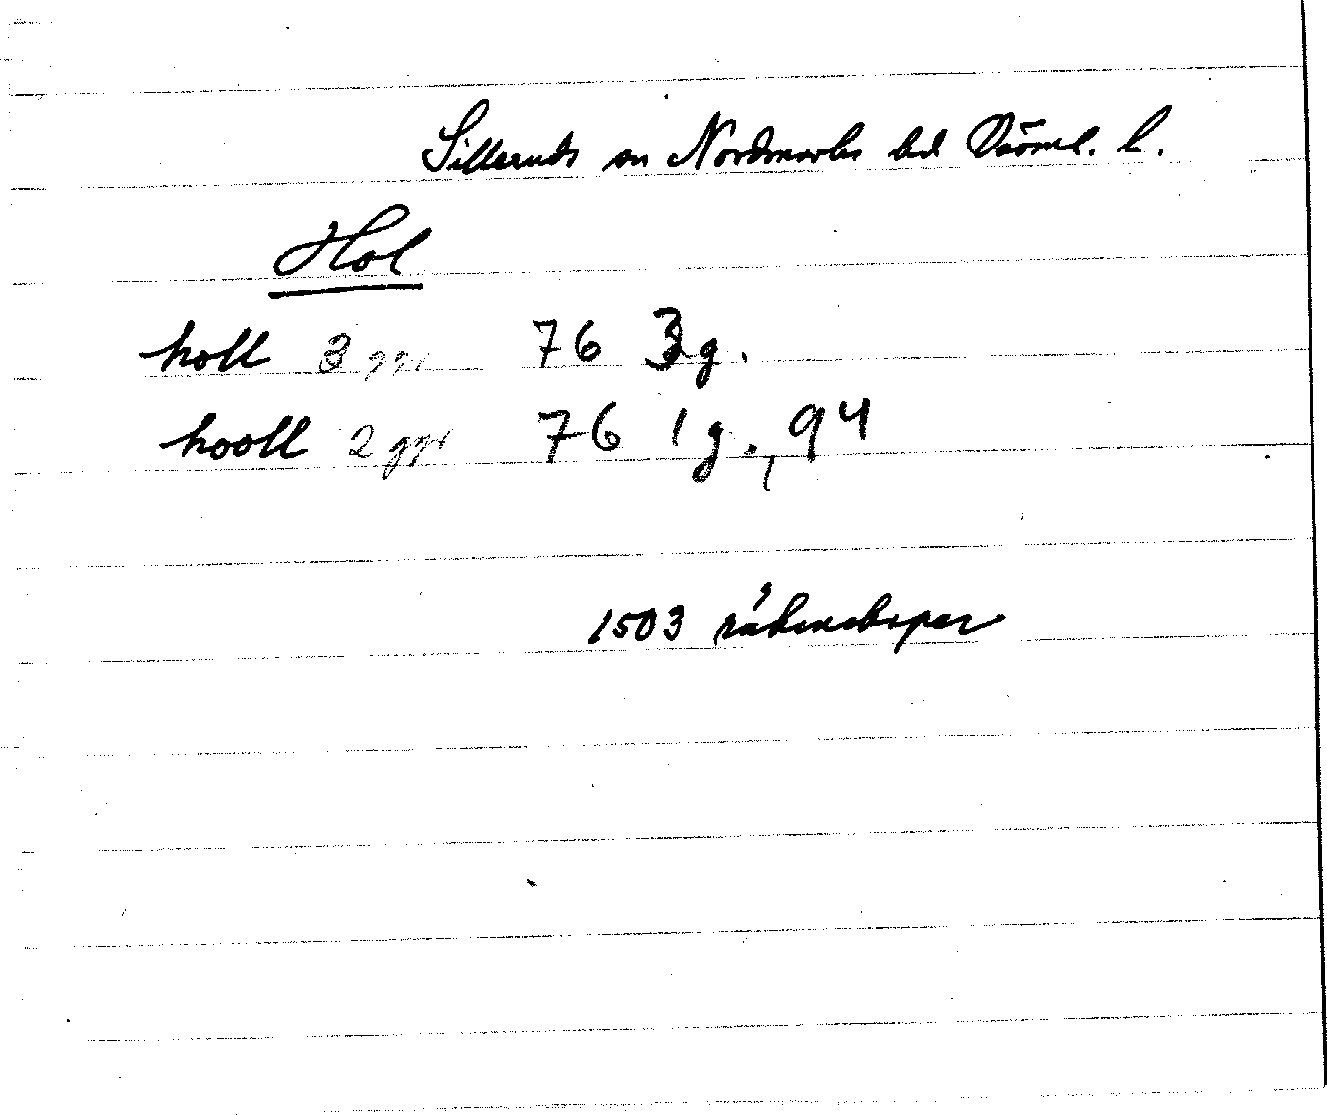 Silleruds sn Nordmarks hd Värml. l.
Hol
holl 3 ggr 76 3 g.
hooll 2 ggr 76 1 g., 94
1503 räkenskaper